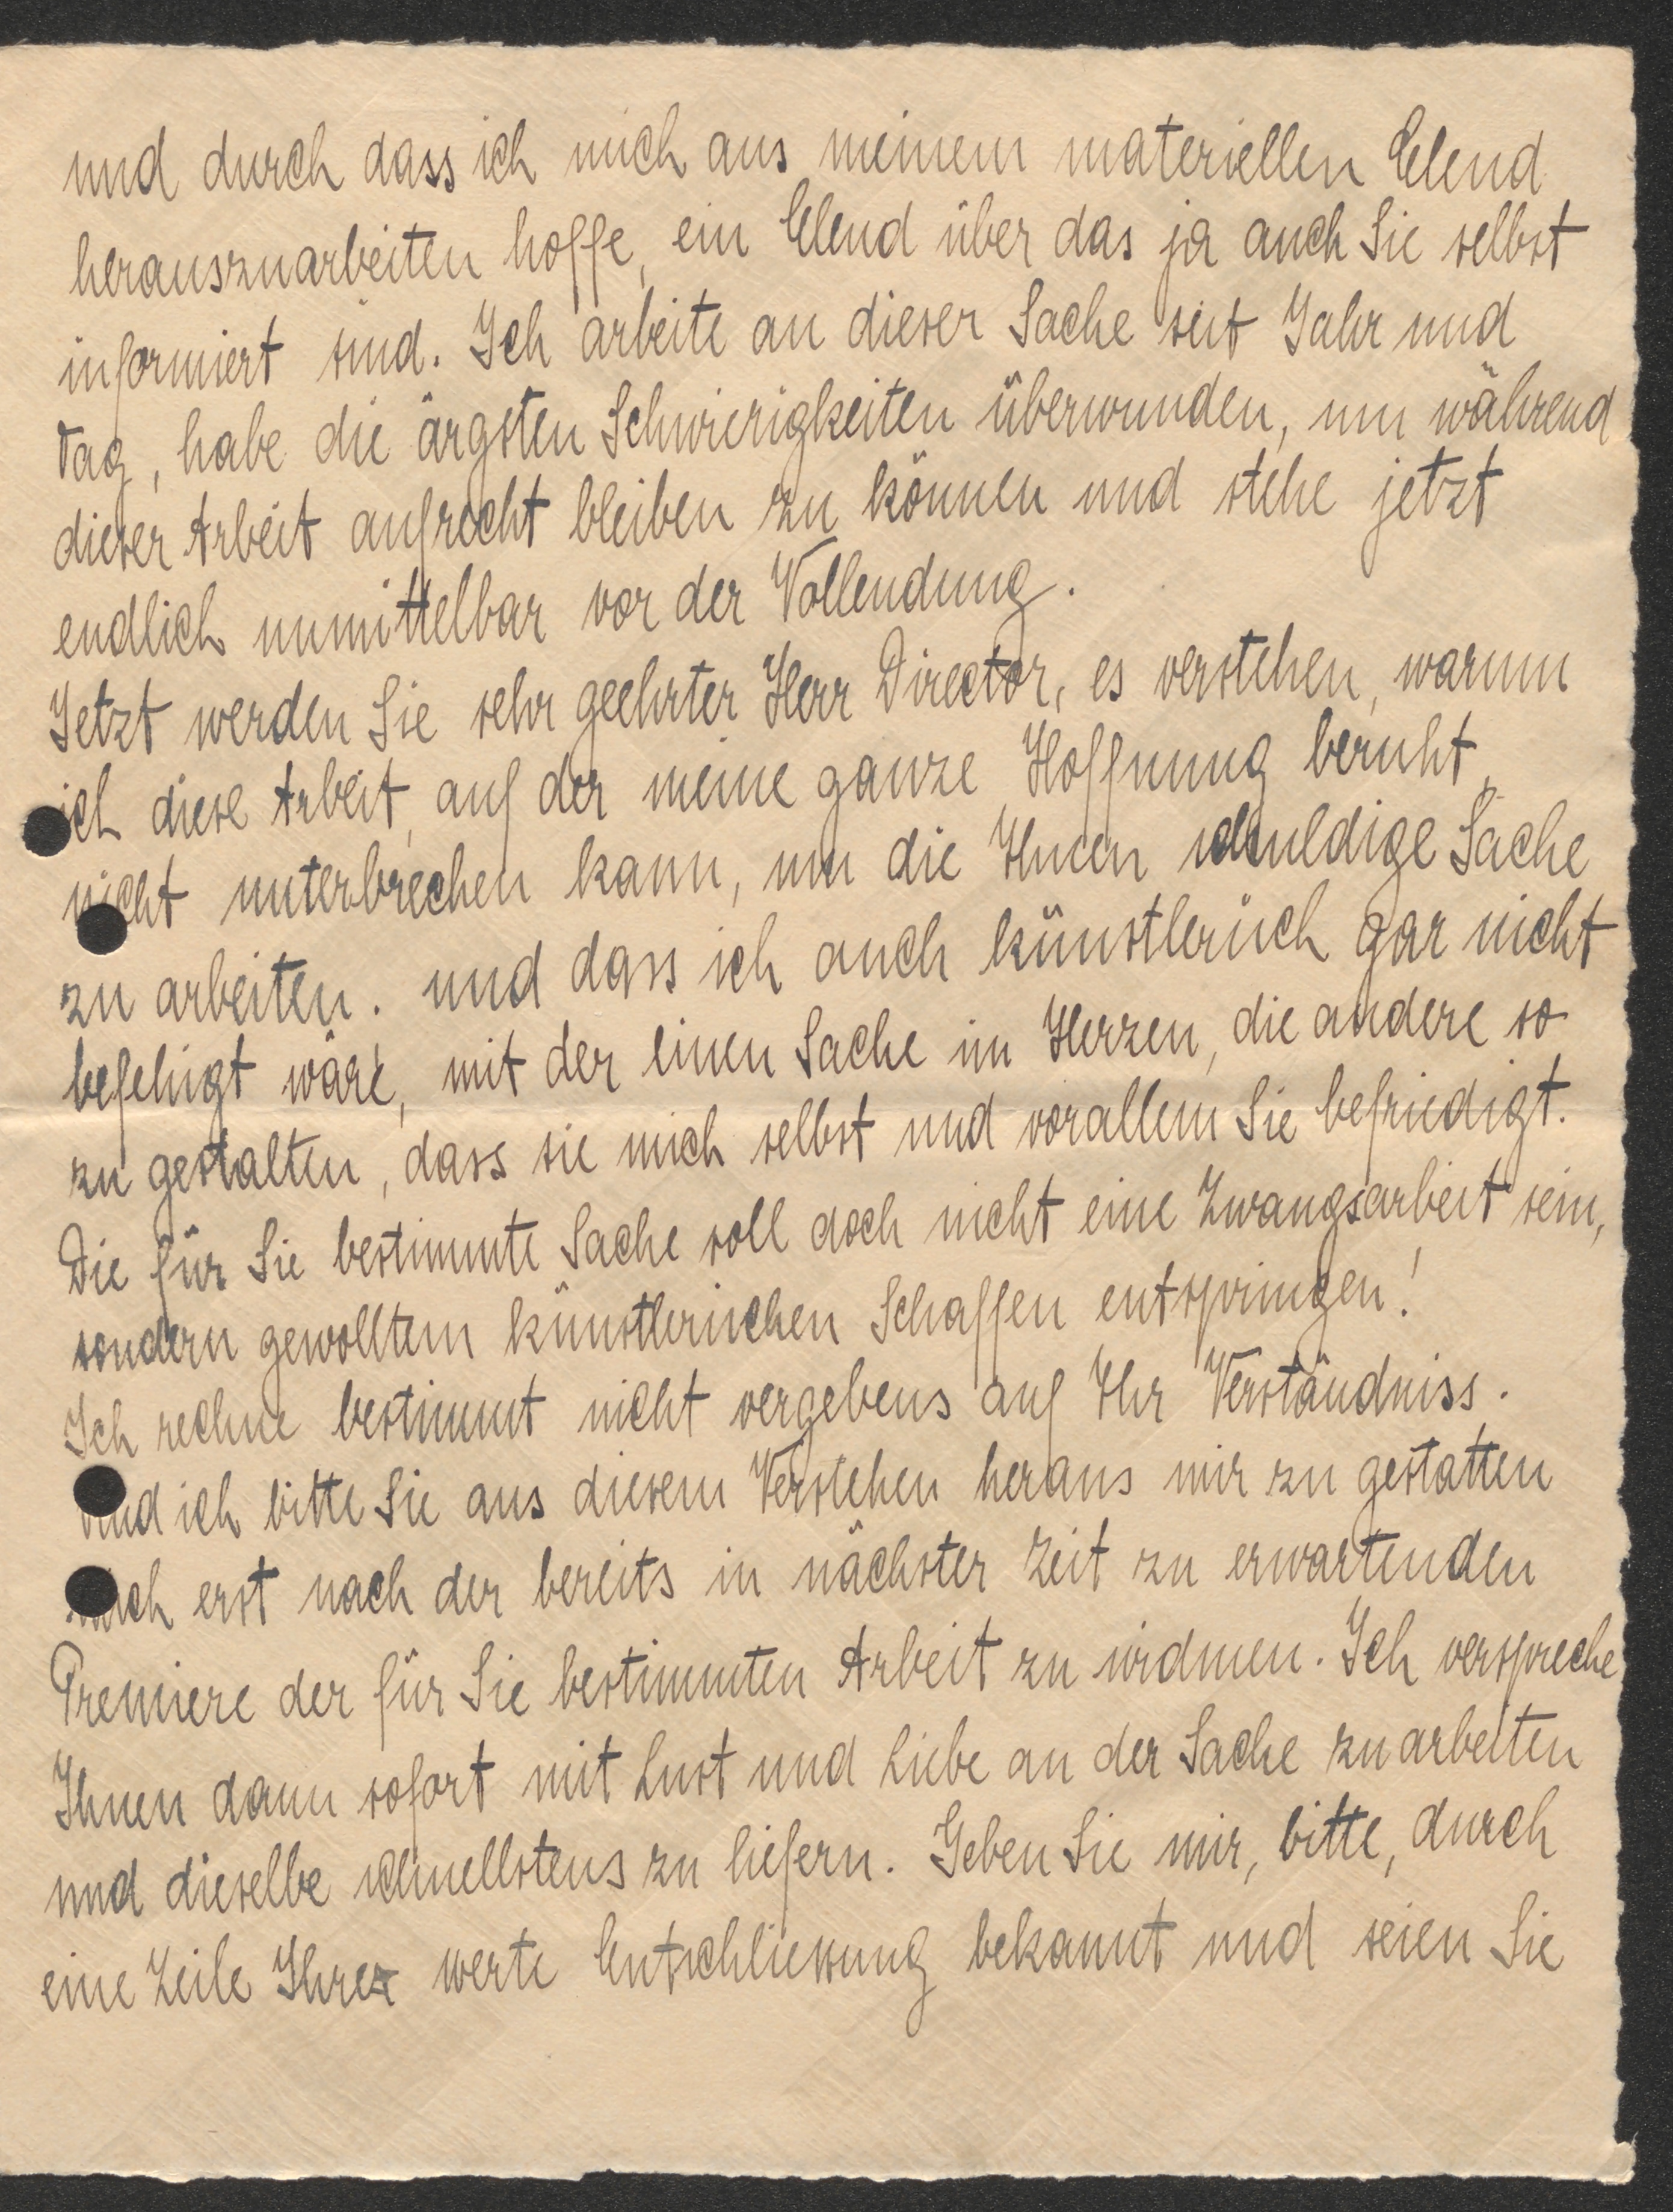 und durch dass ich mich aus meinem materiellen Elend
herauszuarbeiten hoffe, ein Elend über das ja auch Sie selbst
informiert sind. Ich arbeite an dieser Sache seit Jahr und
Tag, habe die ärgsten Schwierigkeiten überwunden, um während
dieser Arbeit aufrecht bleiben zu können und stehe jetzt
endlich unmittelbar vor der Vollendung.
Jetzt werden Sie sehr geehrter Herr Director, es verstehen, warum
ich diese Arbeit, auf der meine ganze Hoffnung beruht,
nicht unterbrechen kann, um die Ihnen schuldige Sache
zu arbeiten. und dass ich auch künstlerisch gar nicht
befehigt wäre, mit der einen Sache im Herzen, die andere so
zu gestalten, dass sie mich selbst und vorallem Sie befriedigt.
Die für Sie bestimmte Sache soll doch nicht eine Zwangsarbeit sein,
sondern gewolltem künstlerischen Schaffen entspringen!
Ich rechne bestimmt nicht vergebens auf Ihr Verständniss.
Und ich bitte Sie aus diesem Verstehen heraus mir zu gestatten
mich erst nach der bereits in nächster Zeit zu erwartenden
Premiere der für Sie bestimmten Arbeit zu widmen. Ich verspreche
Ihnen dann sofort mit Lust und Liebe an der Sache zu arbeiten
und dieselbe schnellstens zu liefern. Geben Sie mir, bitte, durch
eine Zeile Ihre werte Entschliessung bekannt und seien Sie